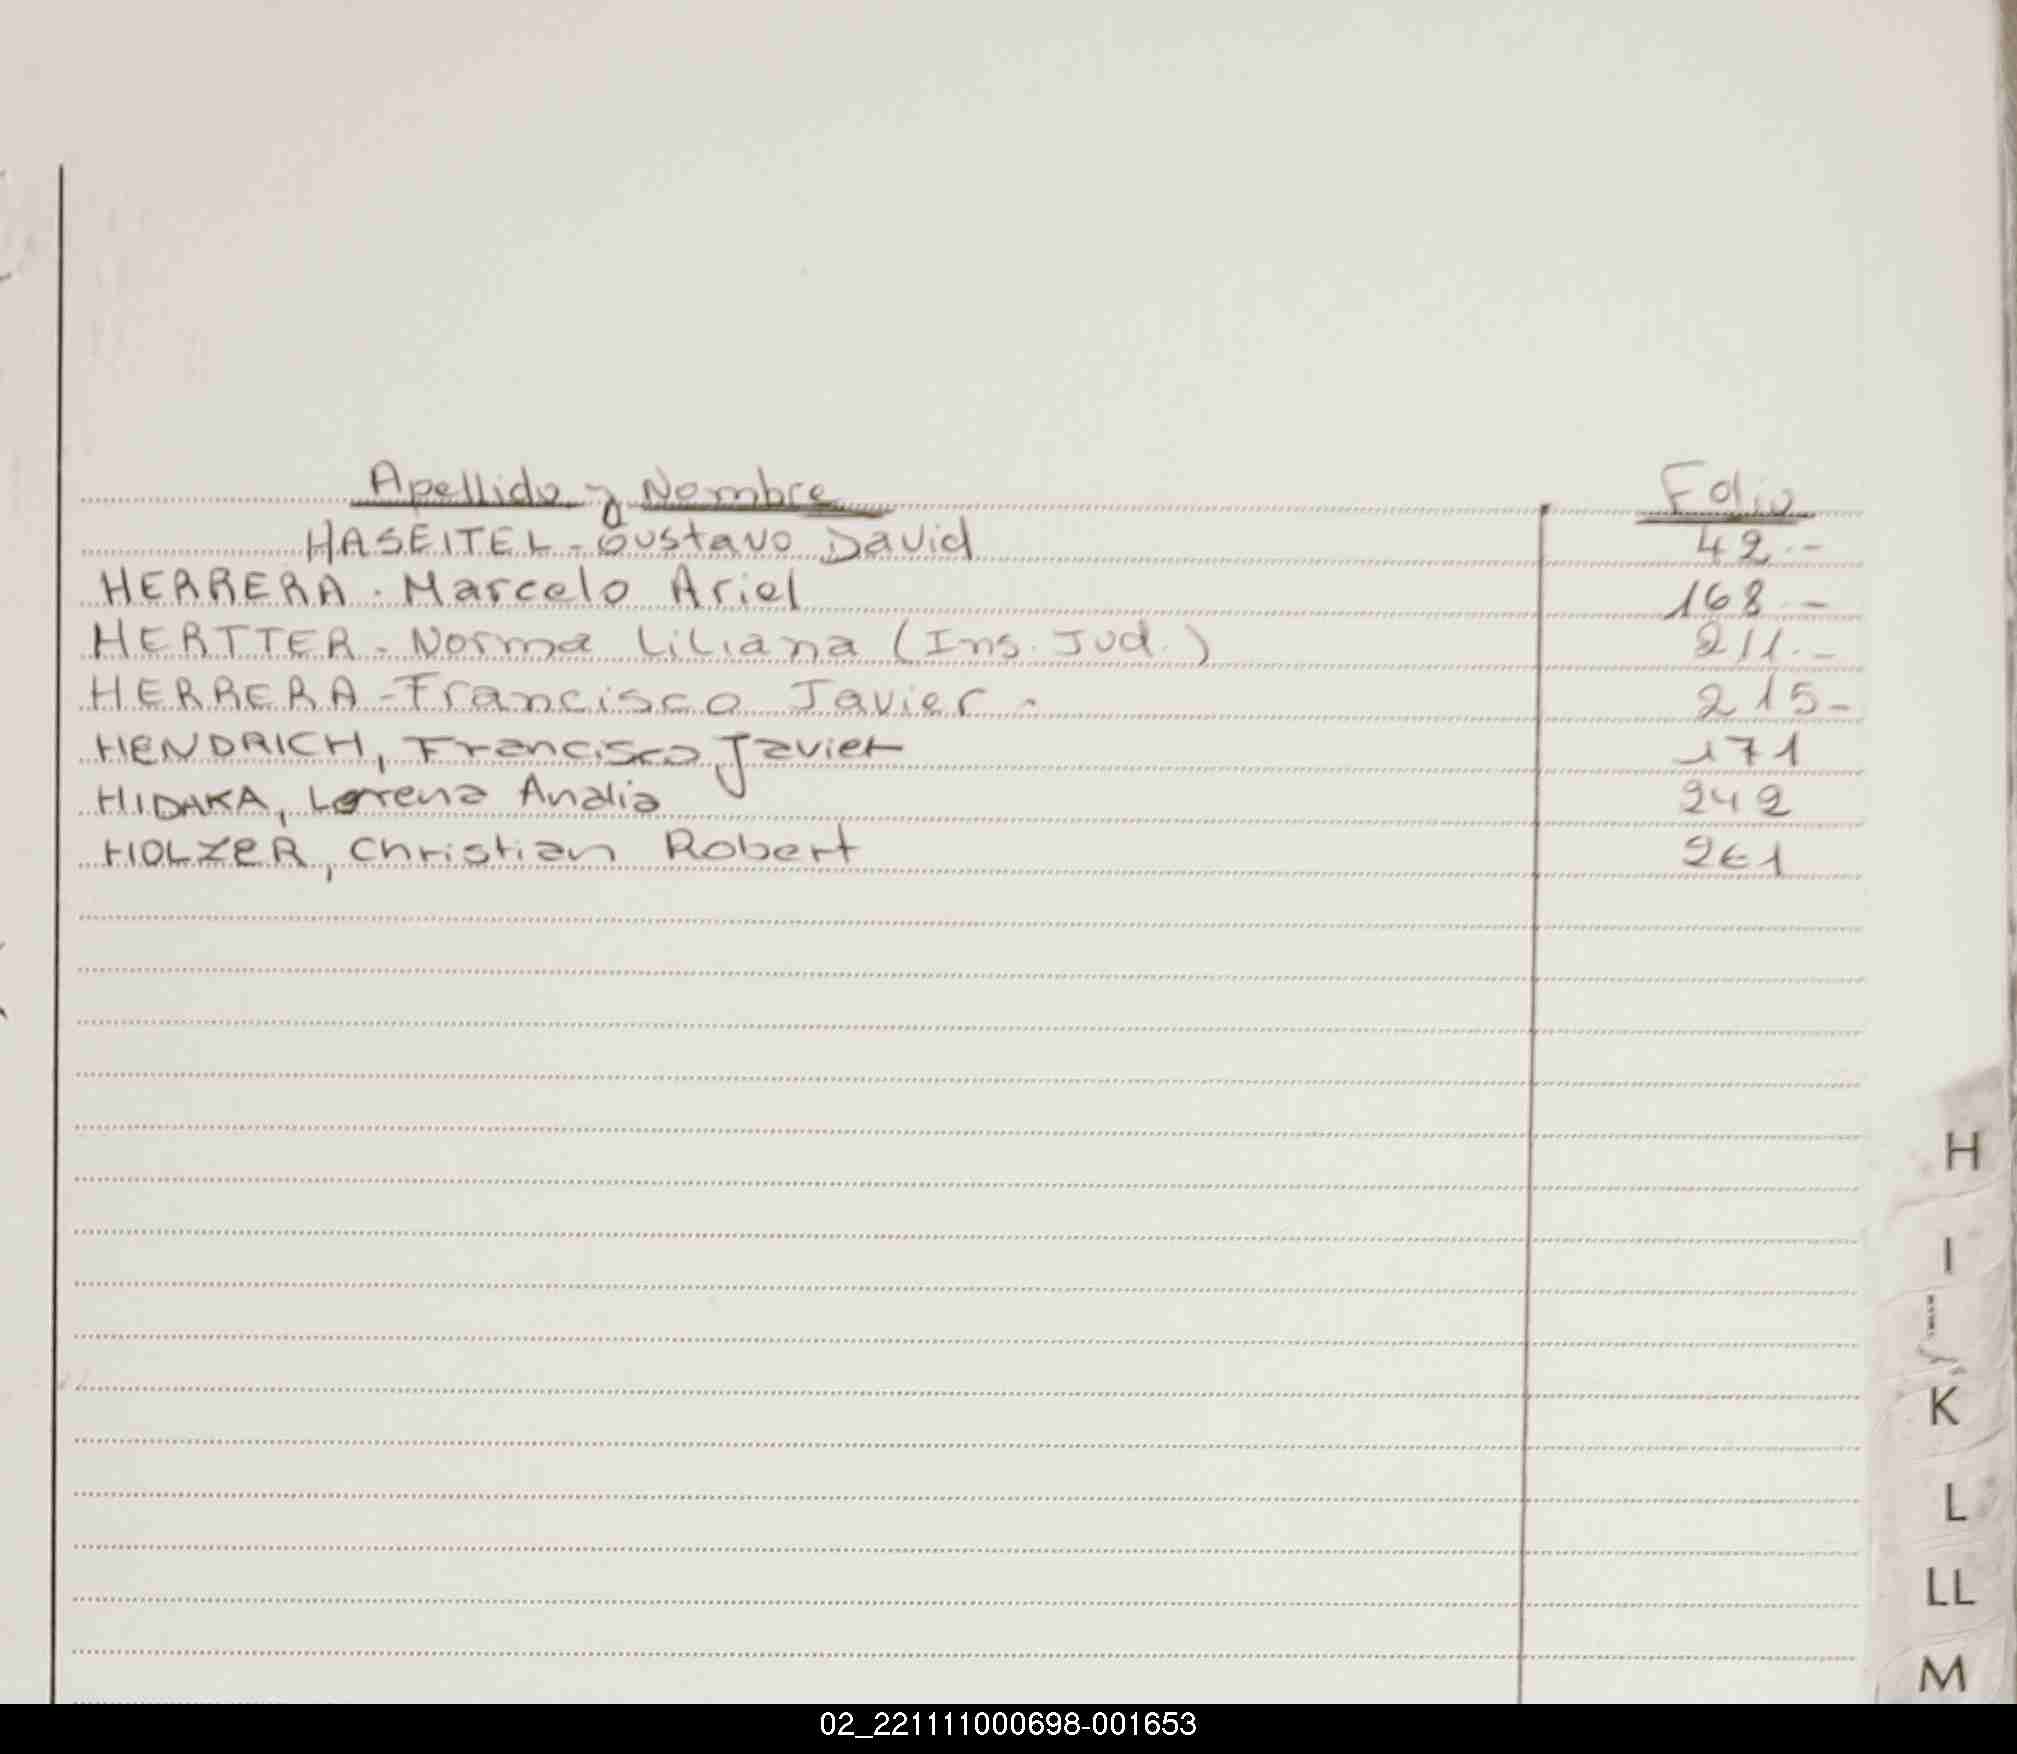 Apellido y Nombre Folio
HASEITEL - Gustavo David 42.-
HERRERA. Marcelo Ariel 168.-
HERTTER - Norma Liliana (Ins. Jud.) 211.-
HERRERA - Francisco Javier - 215-
HENDRICH, Francisco Javier 171
HIDAKA, Lorena Analia 242
HOLZER, Christian Robert 261
H
I
K
L
LL
M
02_221111000698-001653